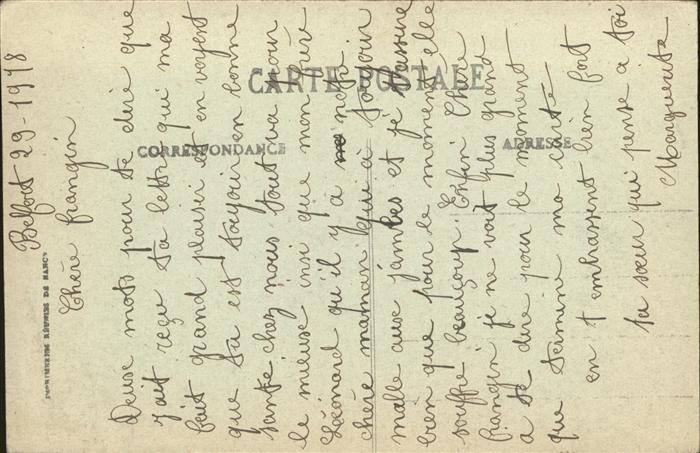 CARTE POSTALE
CORRESPONDANCE
ADRESSE
IMPRIMERIES RÉUNIES DE NANCY
Belfort 29-1918
Chère frangin
Deuse mots pour te dire que
j'ait reçu ta lettre qui ma
fait grand plaisir et en voyent
que tu est toujoir en bonne
santé chez nous tout va pour
le mieuse insi que mon frère
Léonard qu'il y a notre
chère maman qui à toujour
malle aux jambes et je
bien que pour le moment elle
souffre beaucoup. Enfin Chère
frangin je ne voit plus grand
a te dire pour le moment
que termine ma carte
en t embrassent bien fort
ta sœur qui pense a toi
Marguerite